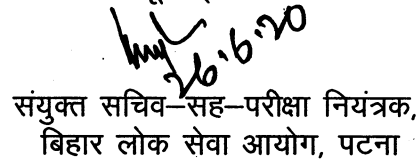 26.6.20
संयुक्त सचिव–सह–परीक्षा नियंत्रक,
बिहार लोक सेवा आयोग, पटना